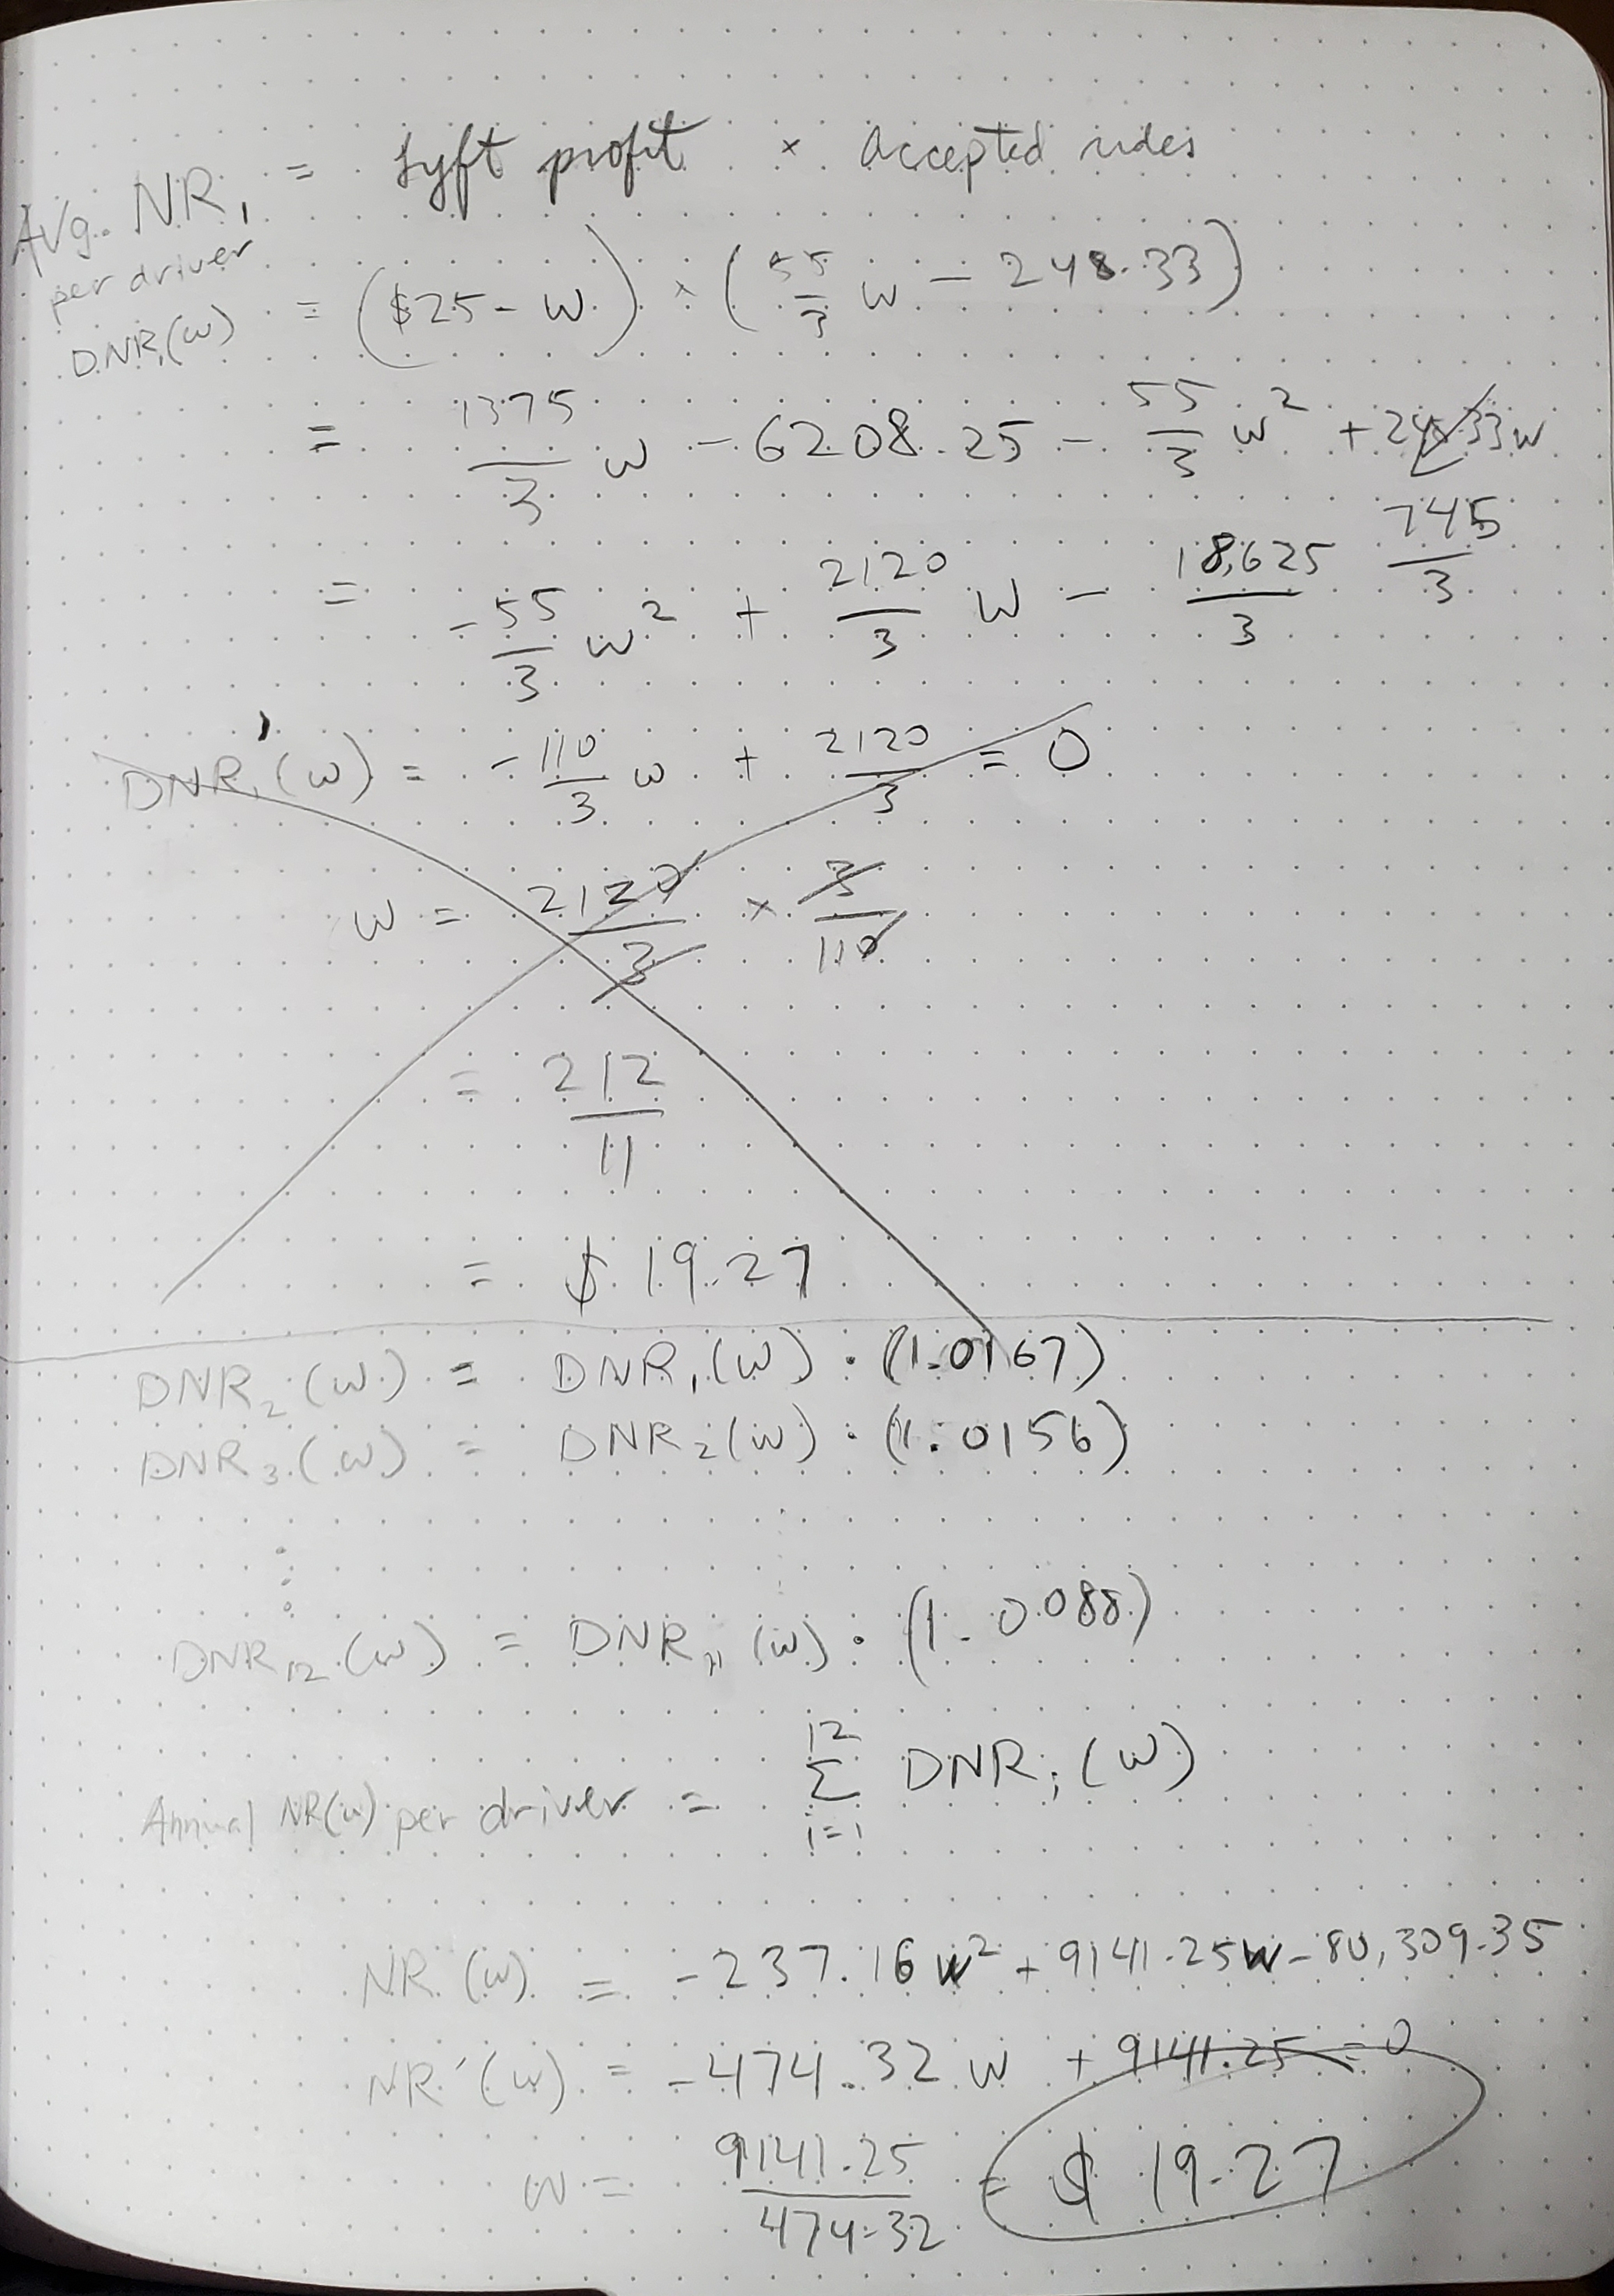 Avg. NR₁ = Lyft profit × accepted rides
per driver
DNR₁(w) = ($25 - w) × (55/3 w - 248.33)
= 1375/3 w - 6208.25 - 55/3 w² + 248.33w
745/3
= -55/3 w² + 2120/3 w - 18,625/3
DNR₁'(w) = -110/3 w + 2120/3 = 0
w = 2120/3 × 3/110
= 212/11
= $19.27
DNR₂(w) = DNR₁(w) · (1.0167)
DNR₃(w) = DNR₂(w) · (1.0156)
⋮
DNR₁₂(w) = DNR₁₁(w) · (1.0088)
Annual NR(w) per driver = 12 Σ i=1 DNRᵢ(w)
NR(w) = -237.16w² + 9141.25w - 80,309.35
NR'(w) = -474.32w + 9141.25 = 0
w = 9141.25/474.32 = $19.27